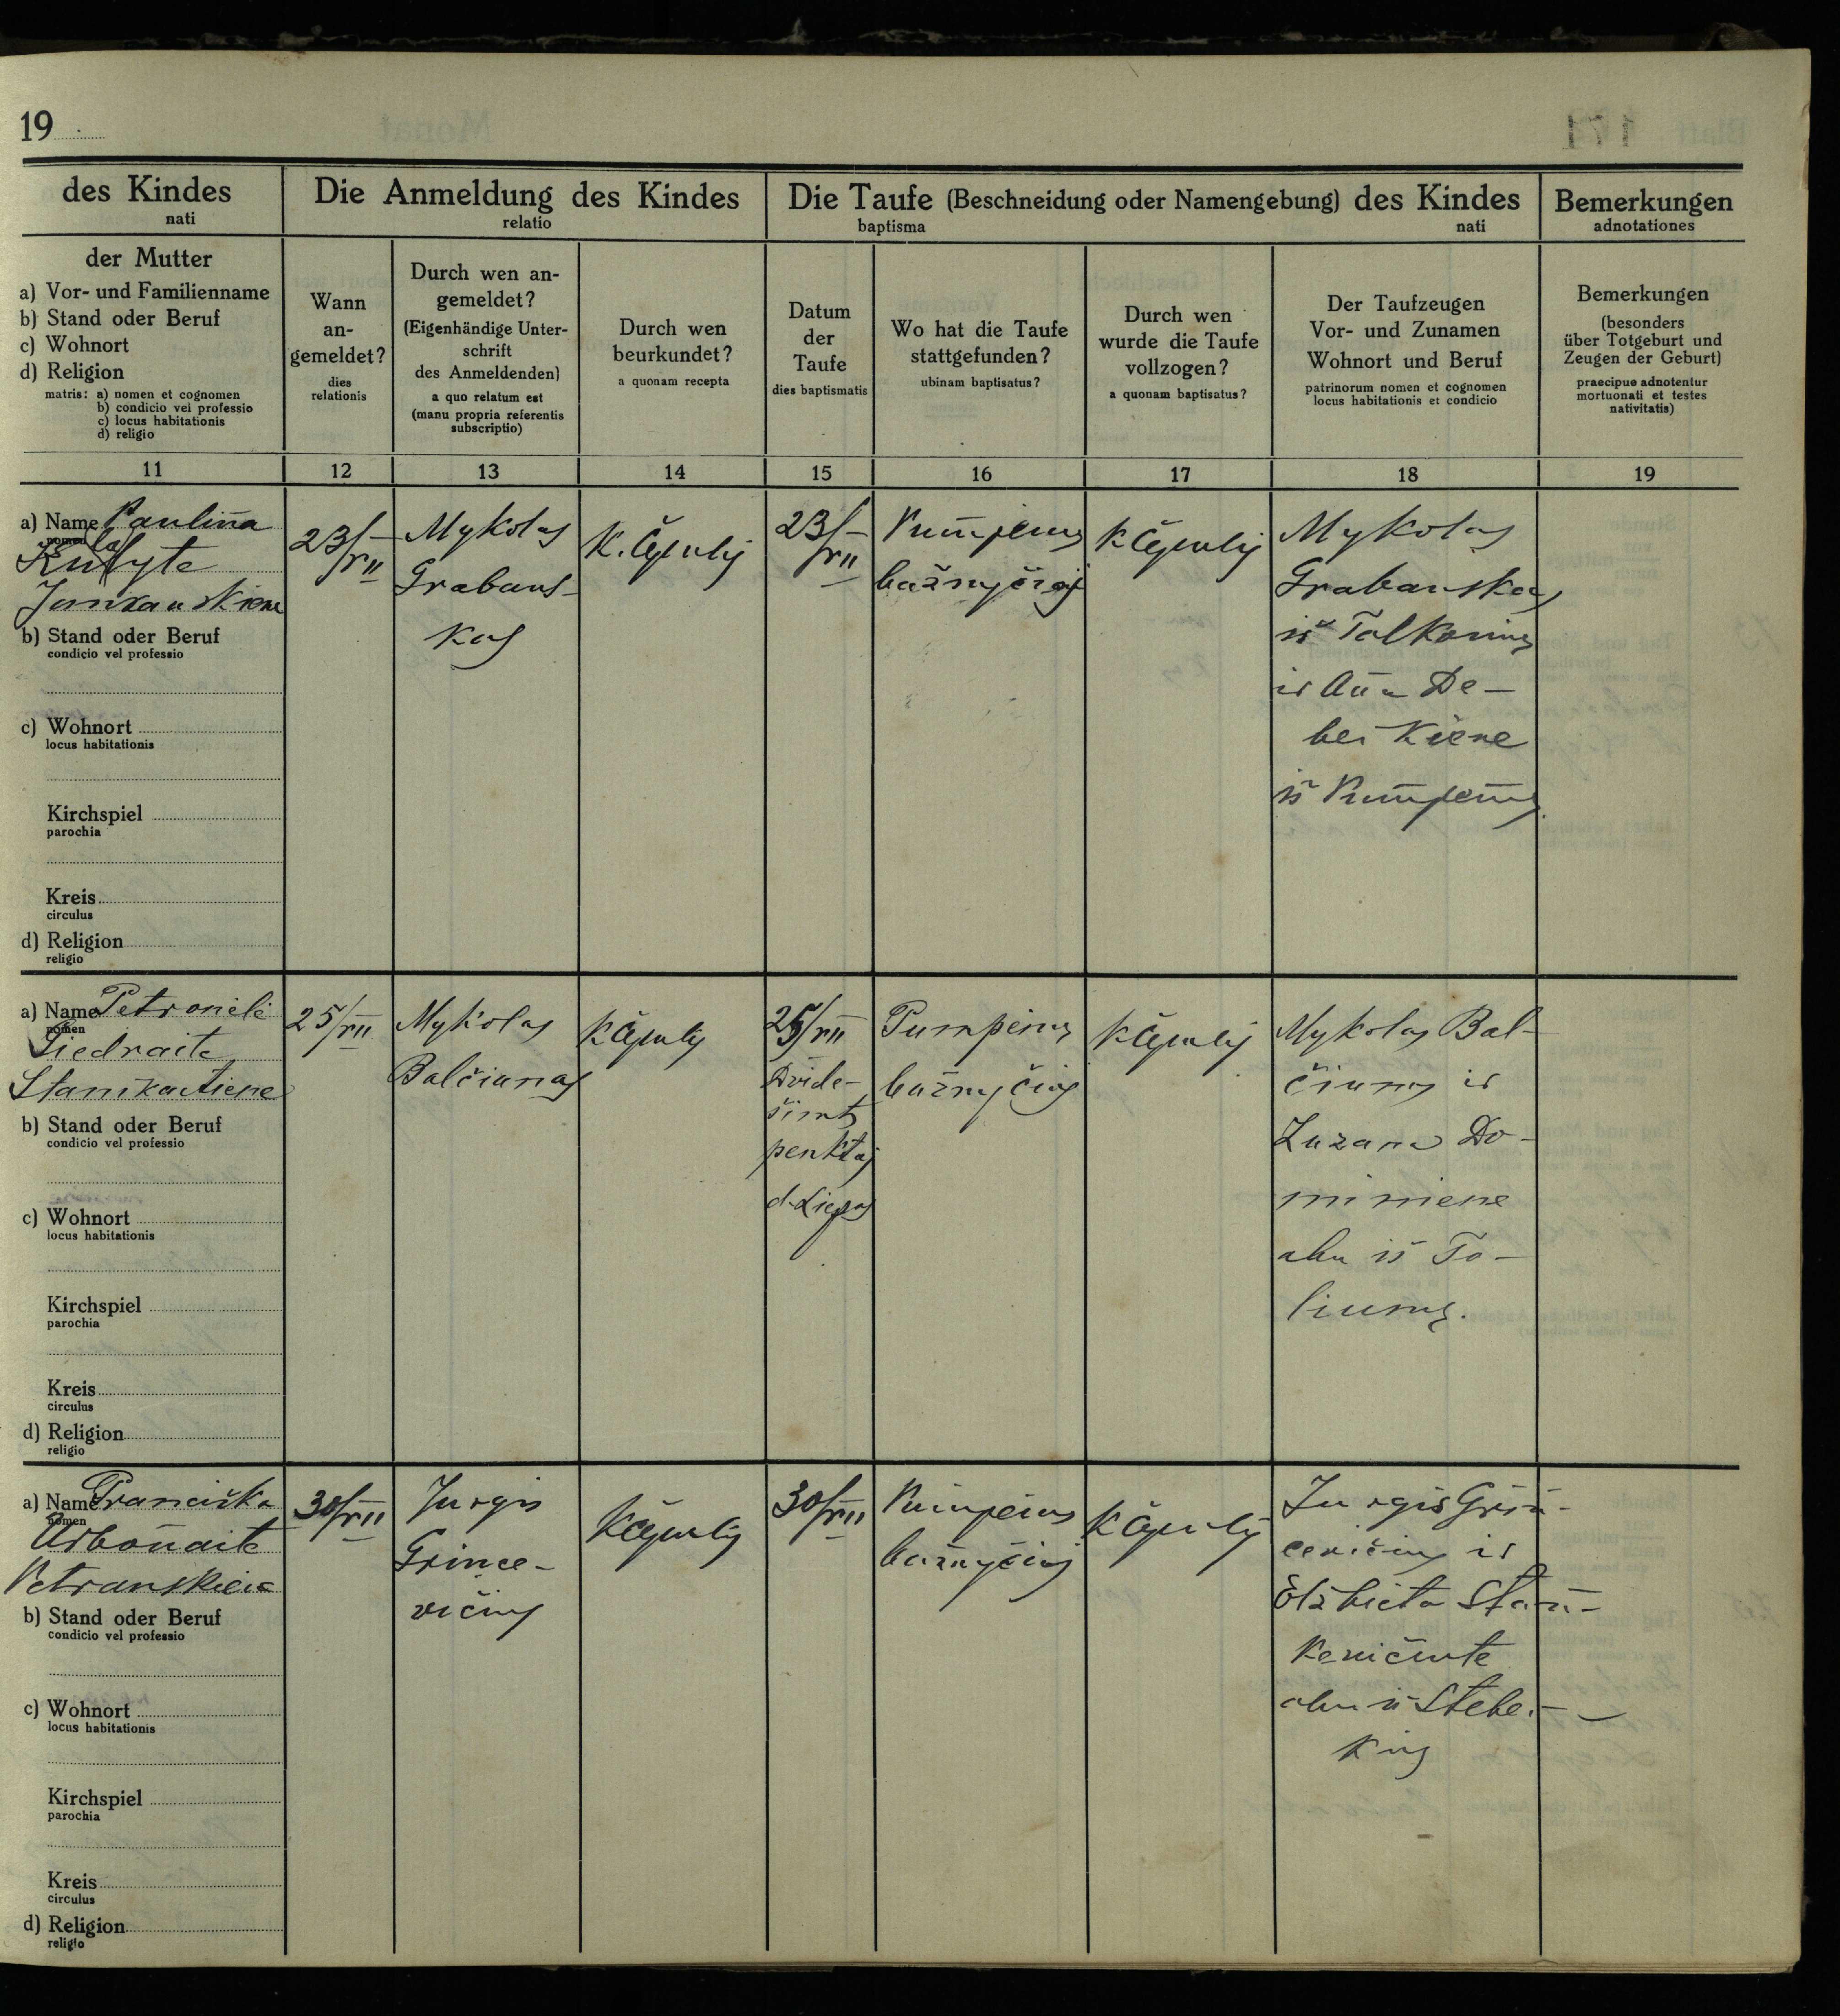 19
des Kindes
nati
Die Anmeldung des Kindes
relatio
Die Taufe (Beschneidung oder Namengebung) des Kindes
baptisma nati
Bemerkungen
adnotationes
der Mutter
a) Vor- und Familienname
b) Stand oder Beruf
c) Wohnort
d) Religion
matris: a) nomen et cognomen
b) condicio vel professio
c) locus habitationis
d) religio
Wann
an-
gemeldet?
dies
relationis
Durch wen an-
gemeldet?
(Eigenhändige Unter-
schrift
des Anmeldenden)
a quo relatum est
(manu propria referentis
subscriptio)
Durch wen
beurkundet?
a quonam recepta
Datum
der
Taufe
dies baptismatis
Wo hat die Taufe
stattgefunden?
ubinam baptisatus?
Durch wen
wurde die Taufe
vollzogen?
a quonam baptisatus?
Der Taufzeugen
Vor- und Zunamen
Wohnort und Beruf
patrinorum nomen et cognomen
locus habitationis et condicio
Bemerkungen
(besonders
über Totgeburt und
Zeugen der Geburt)
praecipue adnotentur
mortuonati et testes
nativitatis)
11 12 13 14 15 16 17 18 19
a) Name Paulina
nomen
Jankauskiene
b) Stand oder Beruf
condicio vel professio
c) Wohnort
locus habitationis
Kirchspiel
parochia
Kreis
circulus
d) Religion
religio
23/VII
Mykolas
Grabaus-
kas
23/VII
bažnyčioj
Mykolas
Grabauskas
iš
ir De-
beikiene
iš
a) Name Petronėlė
nomen
Giedraitė
b) Stand oder Beruf
condicio vel professio
c) Wohnort
locus habitationis
Kirchspiel
parochia
Kreis
circulus
d) Religion
religio
25/VII
Mykolas
Balčiunas
25/VII
Dvide-
šimts
penktaj
d. Liepos
Pumpėnų
bažnyčioj
Mykolas Bal-
čiunas ir
Zuzana Do-
miniene
abu iš To-
liunų.
a) Name Pranciška
nomen
Urbonaitė
Petrauskienė
b) Stand oder Beruf
condicio vel professio
c) Wohnort
locus habitationis
Kirchspiel
parochia
Kreis
circulus
d) Religion
religio
30/VII
Jurgis
Grince-
vičius
30/VII
Pumpėnų
bažnyčioj
Jurgis Grin-
cevičius ir
Elžbieta Stan-
kevičiutė
abu iš Stebe-
kių